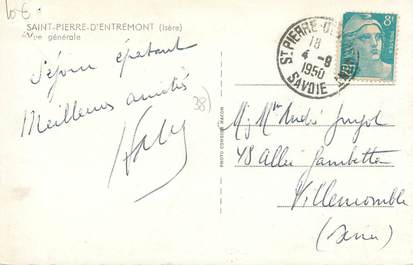 10€
SAINT-PIERRE-D'ENTREMONT (Isère)
Vue générale
Séjour épatant
Meilleures amitiés
38)
PHOTO COMBIER MACON
ST PIERRE-D'
18
4-8
1950
SAVOIE
8F
M. Mme André
48 Allée Gambetta
Villemomble
(Seine)